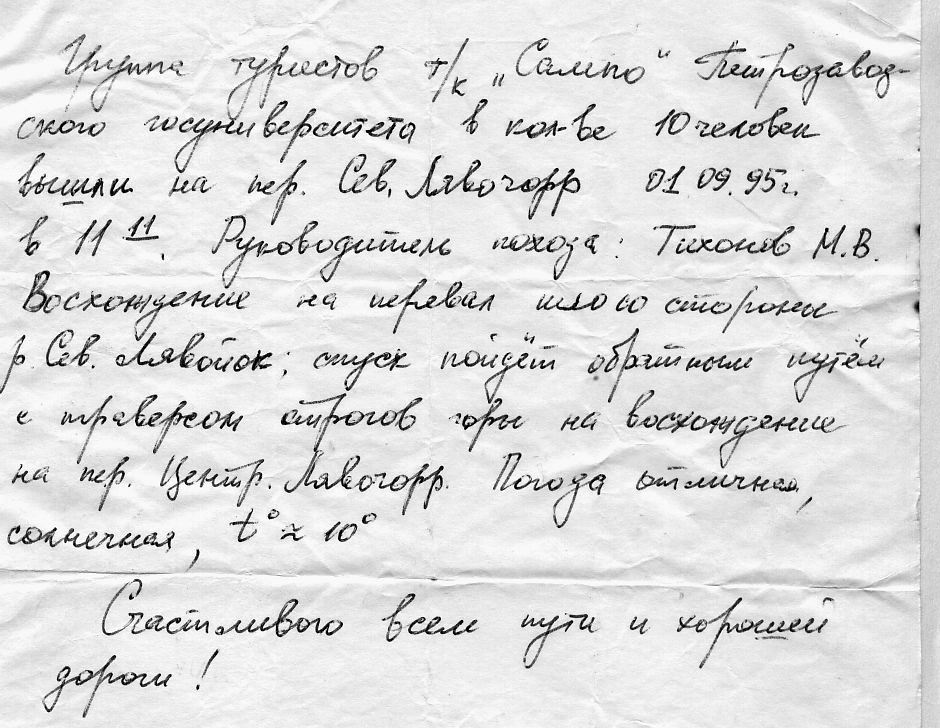 Группа туристов т/к „Сампо“ Петрозавод-
ского госуниверситета в кол-ве 10 человек
вышли на пер. Сев. Лявочорр 01.09.95г.
в 11 11. Руководитель похода: Тихонов М.В.
Восхождение на перевал шло со стороны
р. Сев. Лявойок; спуск пойдёт обратным путём
с траверсом отрогов горы на восхождение
на пер. Центр. Лявочорр. Погода отличная,
солнечная, t° ≈ 10°
Счастливого всем пути и хорошей
дороги!